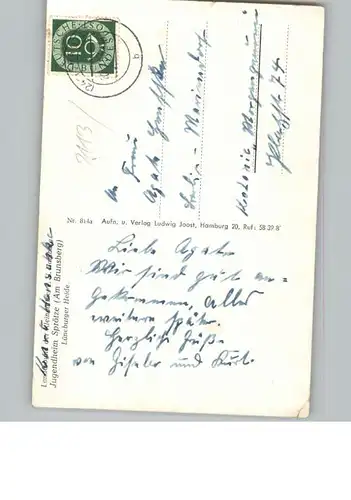 DEUTSCHE BUNDESPOST
10
b
An Frau
Agate
Berlin - Mariendorf
Kolonie Morgengrauen
74
Nr. 814a Aufn. u. Verlag Ludwig Joost, Hamburg 20, Ruf: 58 39 8
Liebe Agate
Wir sind gut an-
gekommen, alles
weitere später.
Herzliche Grüße
von Gisela und Kurt.
Jugendheim Sprötze (Am Brunsberg)
Lüneburger Heide